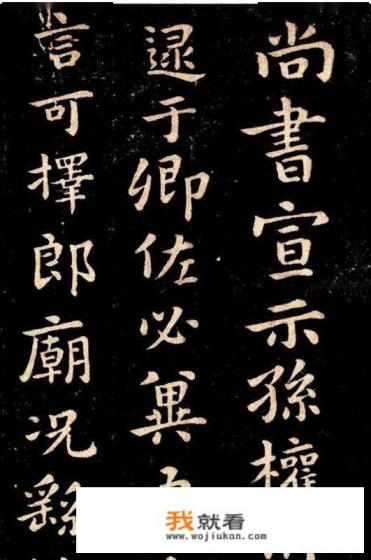 尚書宣示孫權
逮于卿佐必冀
言可擇郎廟況繇
我就看
www.wojiukan.com